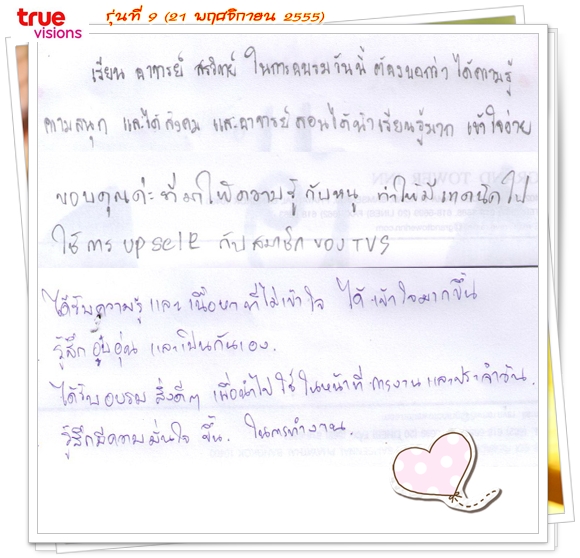 true
visions
รุ่นที่ 9 (21 พฤศจิกายน 2555)
เรียน อาจารย์ สรวิทย์ ในการอบรมวันนี้ ต้องบอกว่า ได้ความรู้
ความสนุก และได้สังคม และอาจารย์สอนได้น่าเรียนรู้มาก เข้าใจง่าย
ขอบคุณค่ะที่มาให้ความรู้กับหนู ทำให้มีเทคนิคไป
ใช้การ up sell กับสมาชิกของ TVS
ได้รับความรู้และเนื้อหาที่ไม่เข้าใจ ได้เข้าใจมากขึ้น
รู้สึกอบอุ่น และเป็นกันเอง.
ได้รับอบรม สิ่งดีๆ เพื่อนำไปใช้ในหน้าที่การงานและประจำวัน.
รู้สึกมีความมั่นใจ ขึ้น. ในการทำงาน.